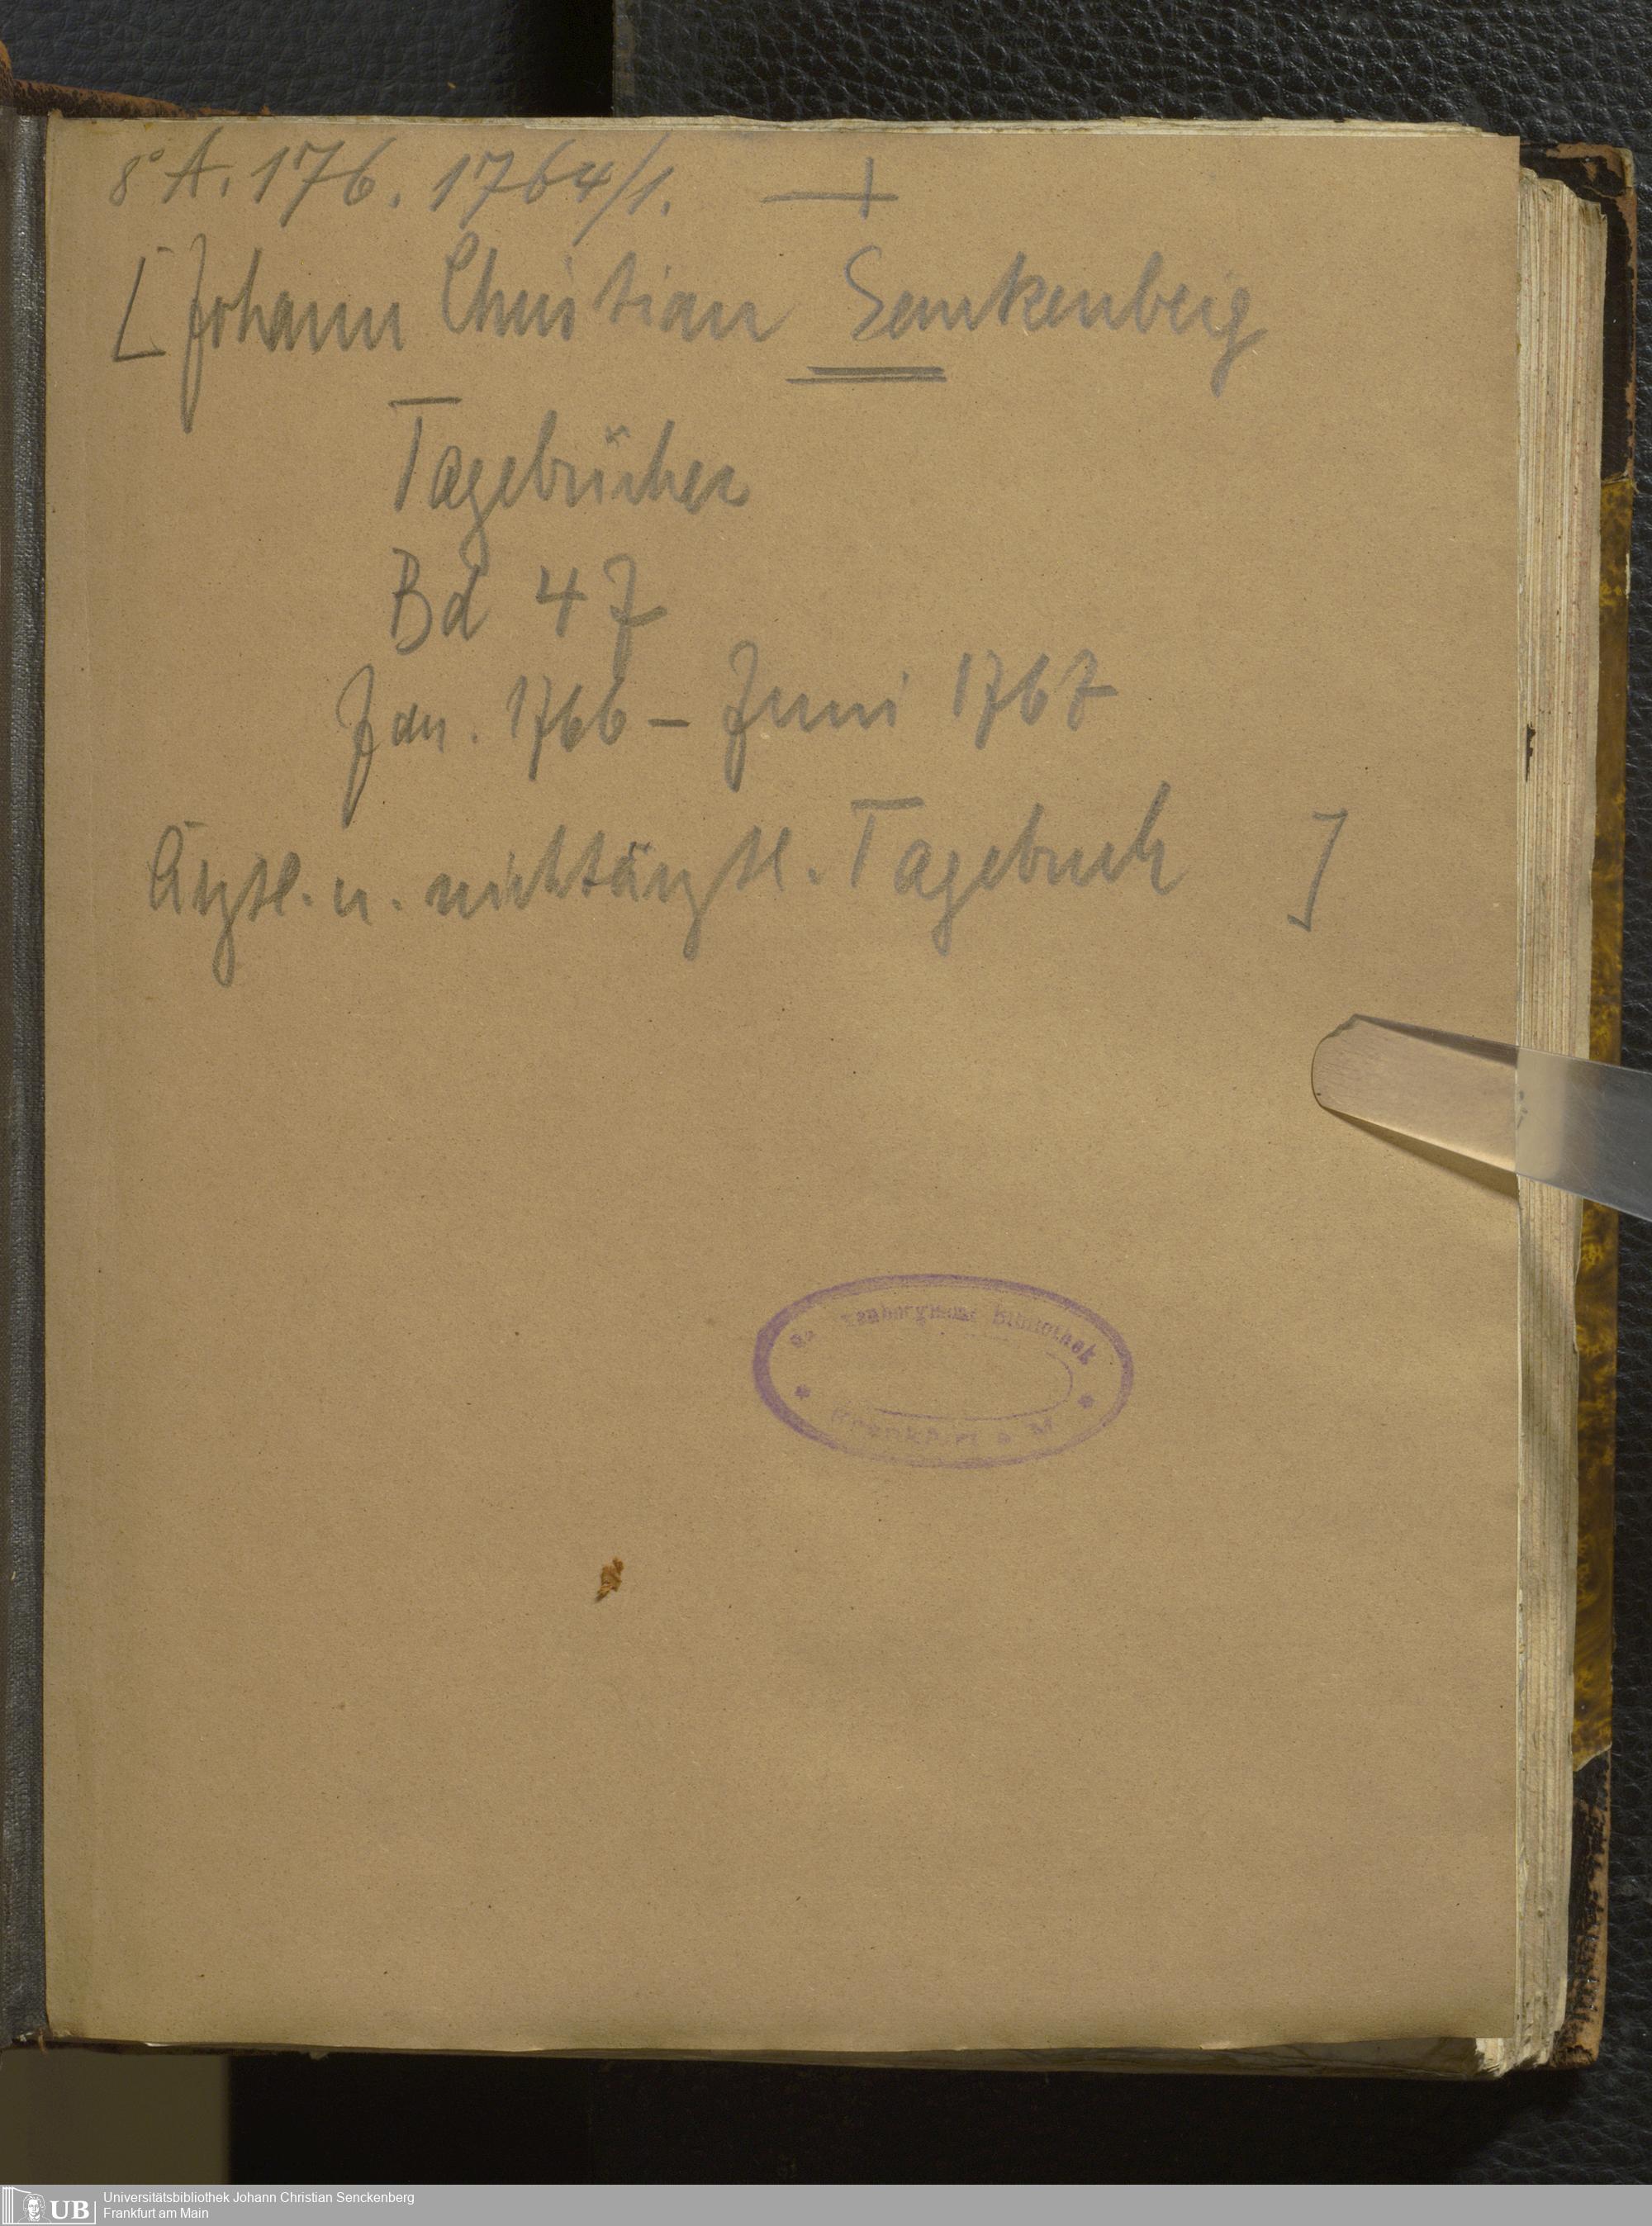 8° A. 176. 1764/1.
[Johann Christian Senckenberg
Tagebücher
Bd 47
Jan. 1766 – Juni 1767
Ärztl. u. nichtärztl. Tagebuch ]
Bibliothek
Frankfurt a. M.
UB
Universitätsbibliothek Johann Christian Senckenberg
Frankfurt am Main